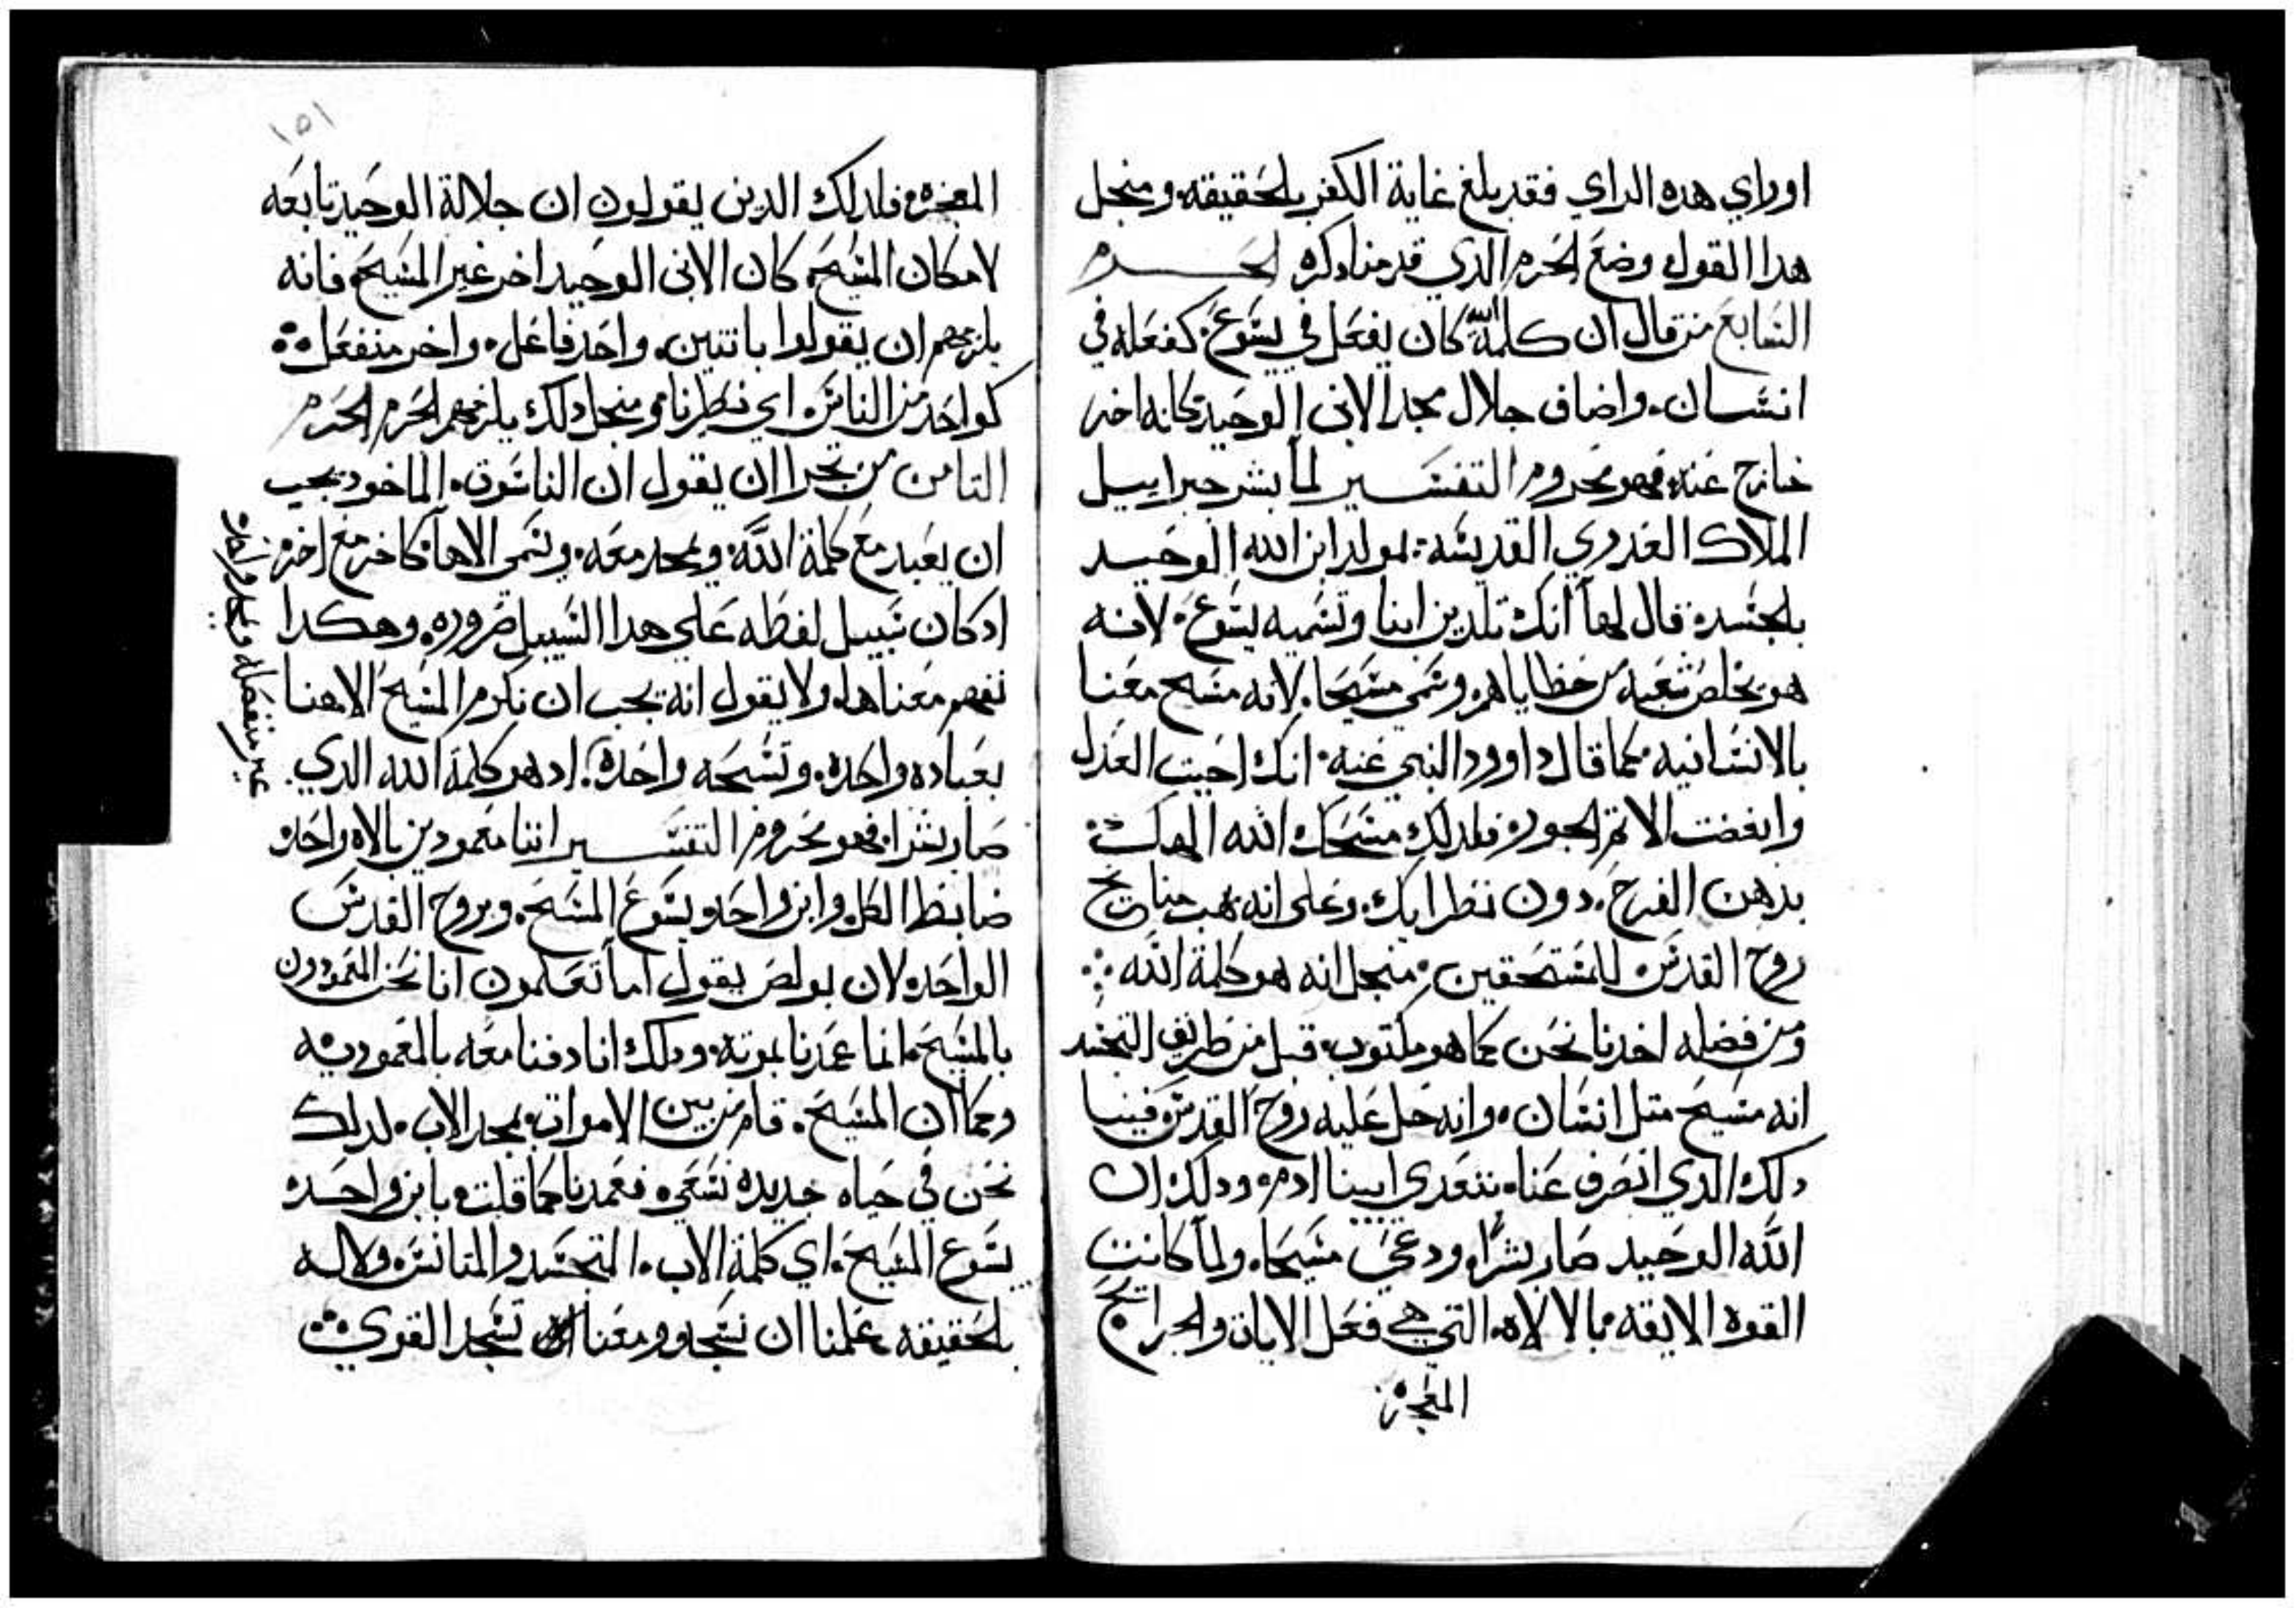 اوراي هده الراي فقد بلغ غاية الكفر بلحقيقه ومنجل
هدا القول وضع الحرم الدي قدمنا دكره الحرم
السابع من قال ان كلمة الله كان يفعل في يسوع كفعله في
انسان واضاف جلال مجد الابن الوحيد كانه اخر
خارج عنه فهو محروم التفسير لما بشر جبراييل
الملاك العدري القديسه بمولد ابن الله الوحيد
بلجسد قال لها انك تلدين ابنا وتسميه يسوع لانه
هو يخلص شعبه من خطاياهم وسمي مسيحا لانه مسح معنا
بالانسانيه كما قال داوود النبي عنه انك احببت العدل
وابغضت الاتم والجور فلدلك مسحك الله الهك
بدهن الفرح دون نظرايك وعلى انه يهب
روح القدس للمستحقين منجل انه هو كلمة الله
ومن فضله اخدنا نحن كما هو مكتوب قبل من طريق التجسد
انه مسيح متل انسان وانه حل عليه روح القدس فينا
دلك الدي انصرف عنا بتعدي ابينا ادم ودلك ان
الله الوحيد صار بشرا ودعي مسيحا ولما كانت
القوه الايقه بالالاه التي هي فعل الايات والجرايح
المعجزه
١٥١
المعجزه فلدلك الدين يقولون ان جلالة الوحيد تابعه
لامكان المسيح كان الابن الوحيد اخر غير المسيح فانه
يلزمهم ان يقولوا باتنين واحد فاعل واخر منفعل
كواحد من الناس اي نظرنا ومنجل دلك يلزمهم الحرم الحرم
التامن من تجرا ان يقول ان الناسوت الماخود يجب
ان يعبد مع كلمة الله ويمجد معه وتسمى الاها كاخر مع اخر
ادكان سبيل لفظه علي هدا السبيل ضروره وهكدا
نفهم معناها ولا يقول انه يجب ان نكرم المسيح الاهنا
بعباده واحده وتسبحه واحده اد هو كلمة الله الدي
صار بشرا فهو محروم التفسير اننا معمودين بالاه واحد
ضابط الكل وابن واحد يسوع المسيح وبروح القدس
الواحد لان بولص يقول اما تعلمون انا نحن المعمودون
بالمسيح انما عمدنا بموته ودلك انا دفنا معه بالمعموديه
وكما ان المسيح قام من بين الاموات بمجد الاب لدلك
نحن في حياه جديده نسعي فعمدنا كما قلت بابن واحد
يسوع المسيح اي كلمة الاب المتجسد والمتانس ولاله
بلحقيقه علمنا ان نسجد ومعنا تسجد القوي
غير منفصله